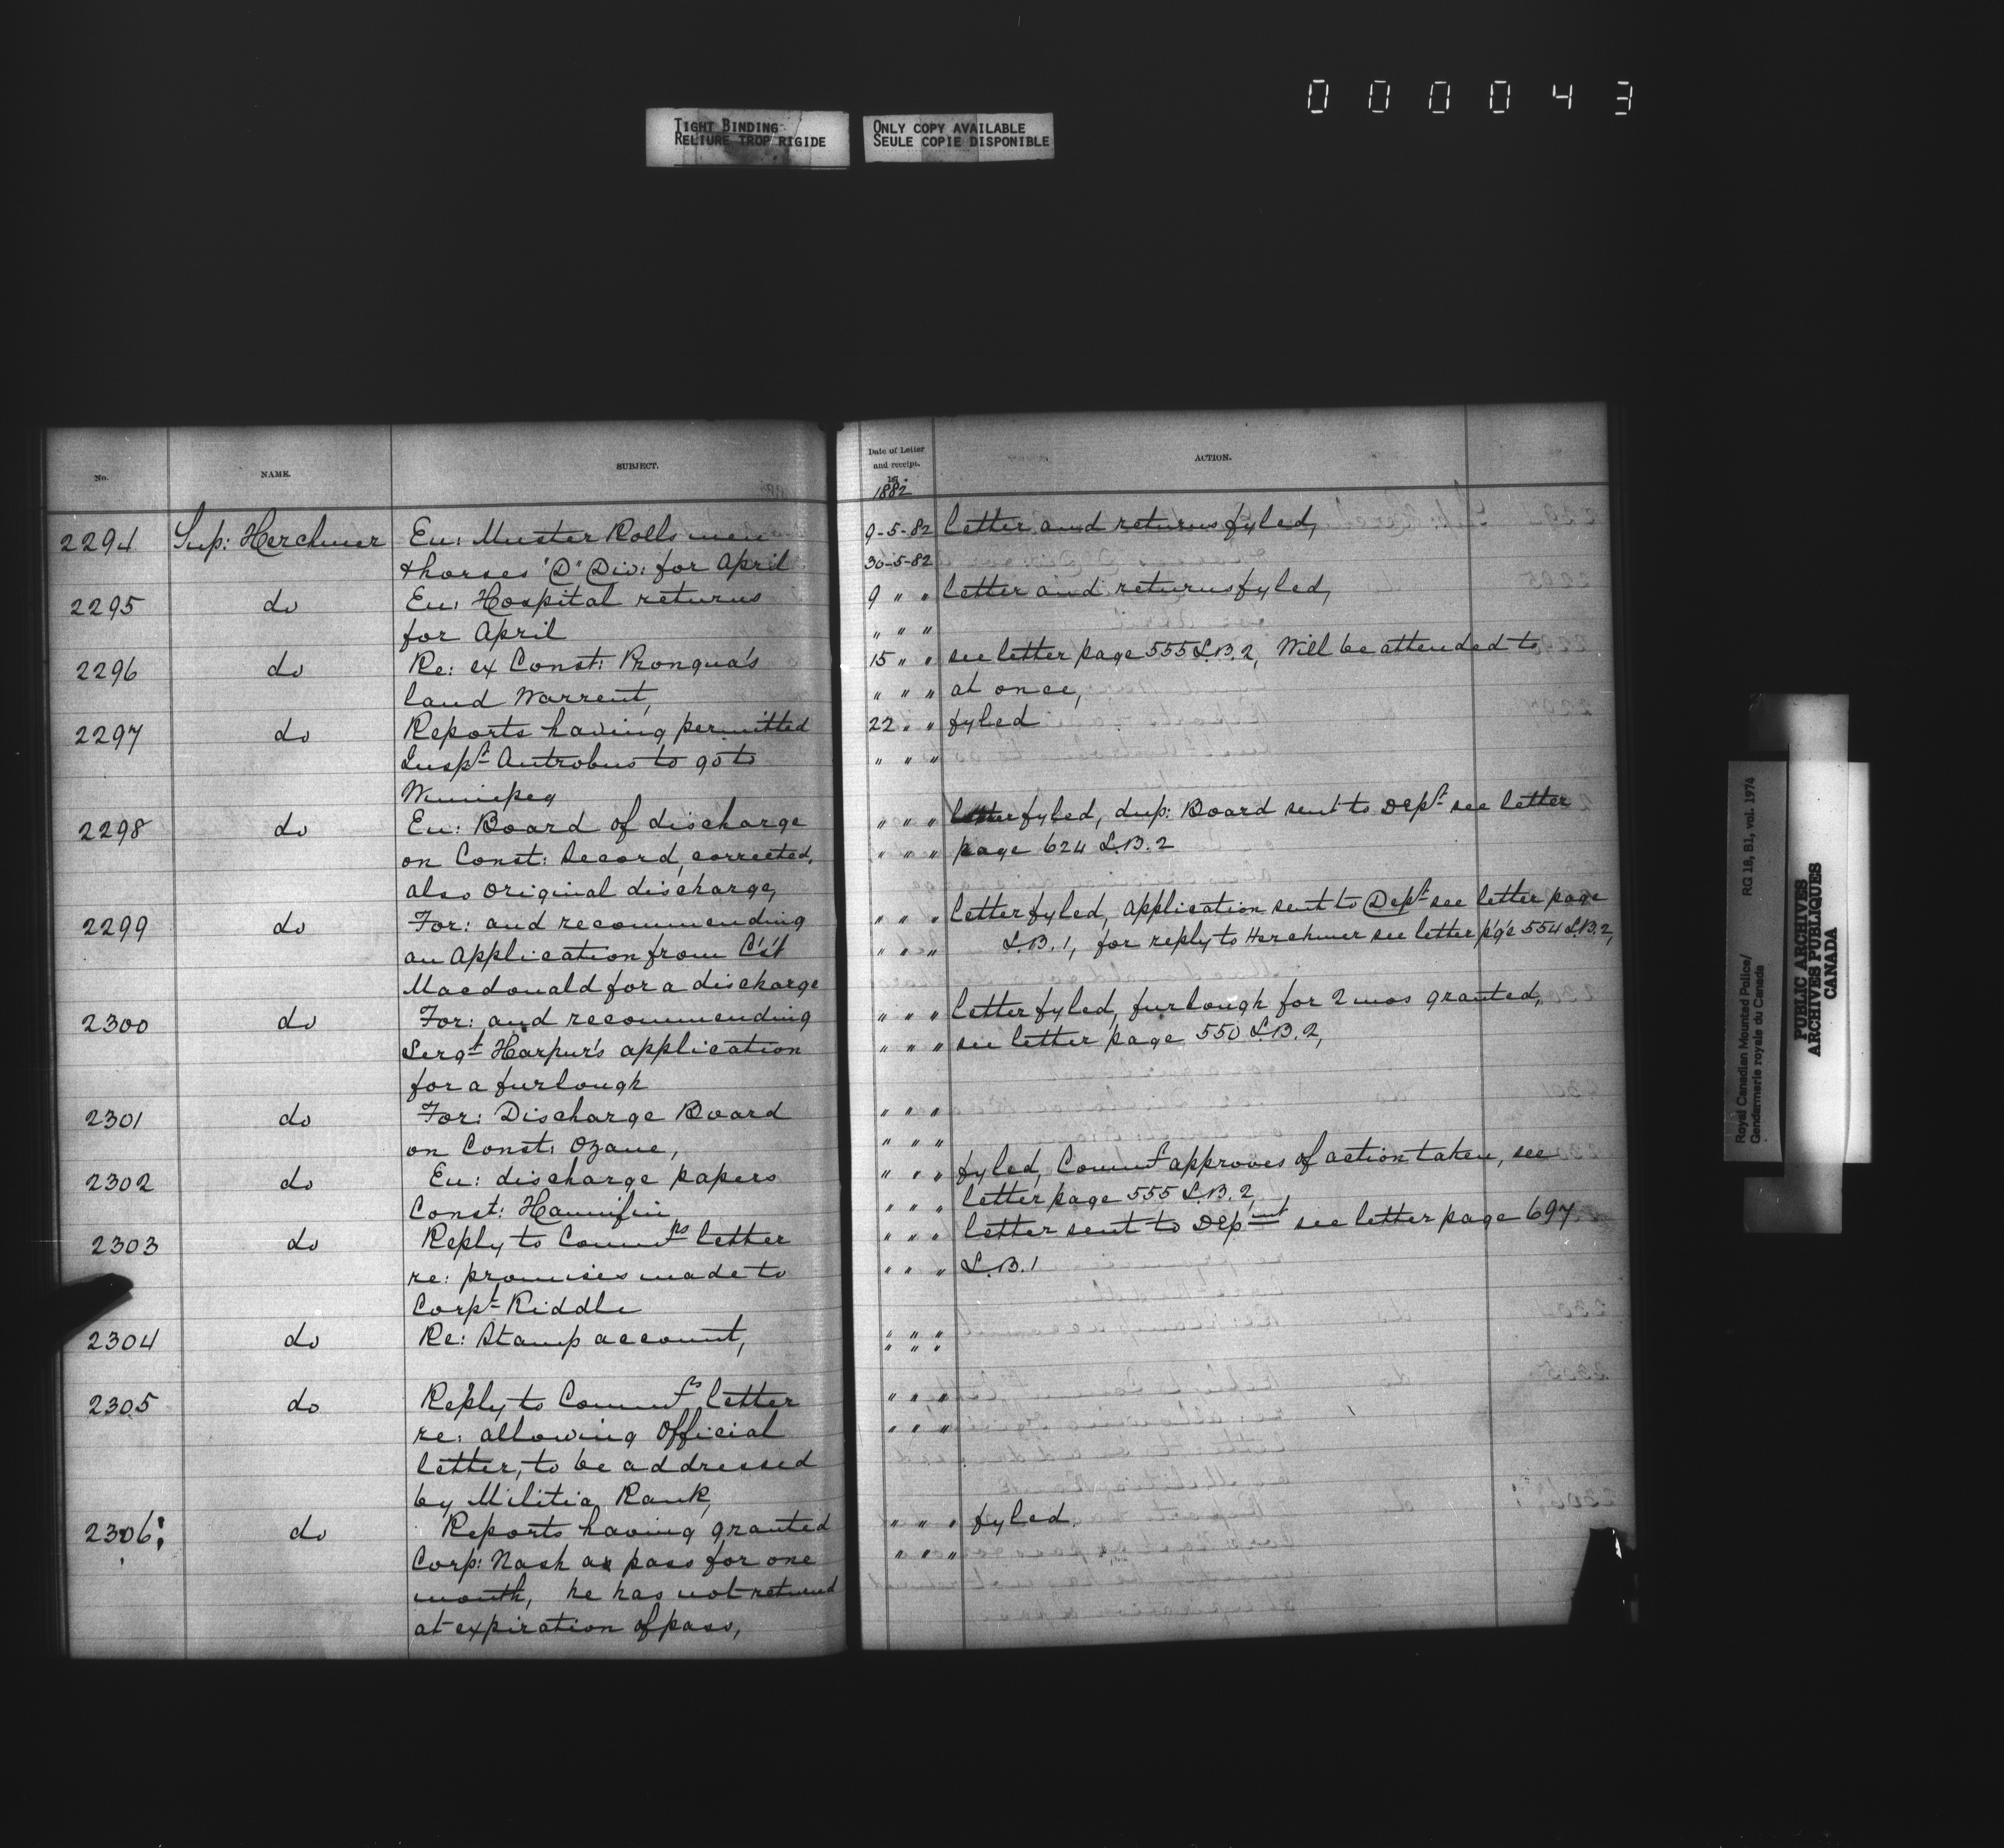 0 0 0 0 4 3
TIGHT BINDING
RELIURE TROP RIGIDE
ONLY COPY AVAILABLE
SEULE COPIE DISPONIBLE
No. NAME. SUBJECT.
2294 Sup: Herchmer En: Muster Rolls men
& horses "D" Div: for April
2295 do En: Hospital returns
for April
2296 do Re: ex Const: Pronqua's
land Warrent,
2297 do Reports having permitted
Inspt Antrobus to go to
Winnipeg
2298 do En: Board of discharge
on Const: Secord, corrected,
also original discharge,
2299 do For: and recommending
an Application from C's't
Macdonald for a discharge
2300 do For: and recommending
Sergt Harpur's application
for a furlough
2301 do For: Discharge Board
on Const: Ozane,
2302 do En: discharge papers
Const: Hannifin
2303 do Reply to Commrs letter
re: promises made to
Corpt Riddle
2304 do Re: Stamp account,
2305 do Reply to Commrs letter
re: allowing Official
letter, to be addressed
by Militia Rank,
2306: do Reports having granted
Corp: Nash a pass for one
month, he has not returned
at expiration of pass,
Date of Letter
and receipt.
18
1882
ACTION.
9-5-82 letter and returns fyled,
30-5-82
9 " " letter and returns fyled,
" " "
15 " " see letter page 555 L.B.2, Will be attended to
" " " at once,
22 " " fyled
" " "
" " " letter fyled, dup: Board sent to Dept see letter
" " " page 624 L.B.2
" " " letter fyled, application sent to Dept see letter page
" " " L.B.1, for reply to Herchmer see letter p'g'e 554 L.B.2,
" " " letter fyled, furlough for 2 mos granted,
" " " see letter page 550 L.B.2,
" " "
" " "
" " " fyled, Commr approves of action taken, see
" " " letter page 555 L.B.2,
" " " letter sent to Depmnt see letter page 697
" " " L.B.1
" " "
" " "
" " "
" " "
" " " fyled.
" " "
Royal Canadian Mounted Police/ RG 18, B1, vol. 1974
Gendarmerie royale du Canada
PUBLIC ARCHIVES
ARCHIVES PUBLIQUES
CANADA